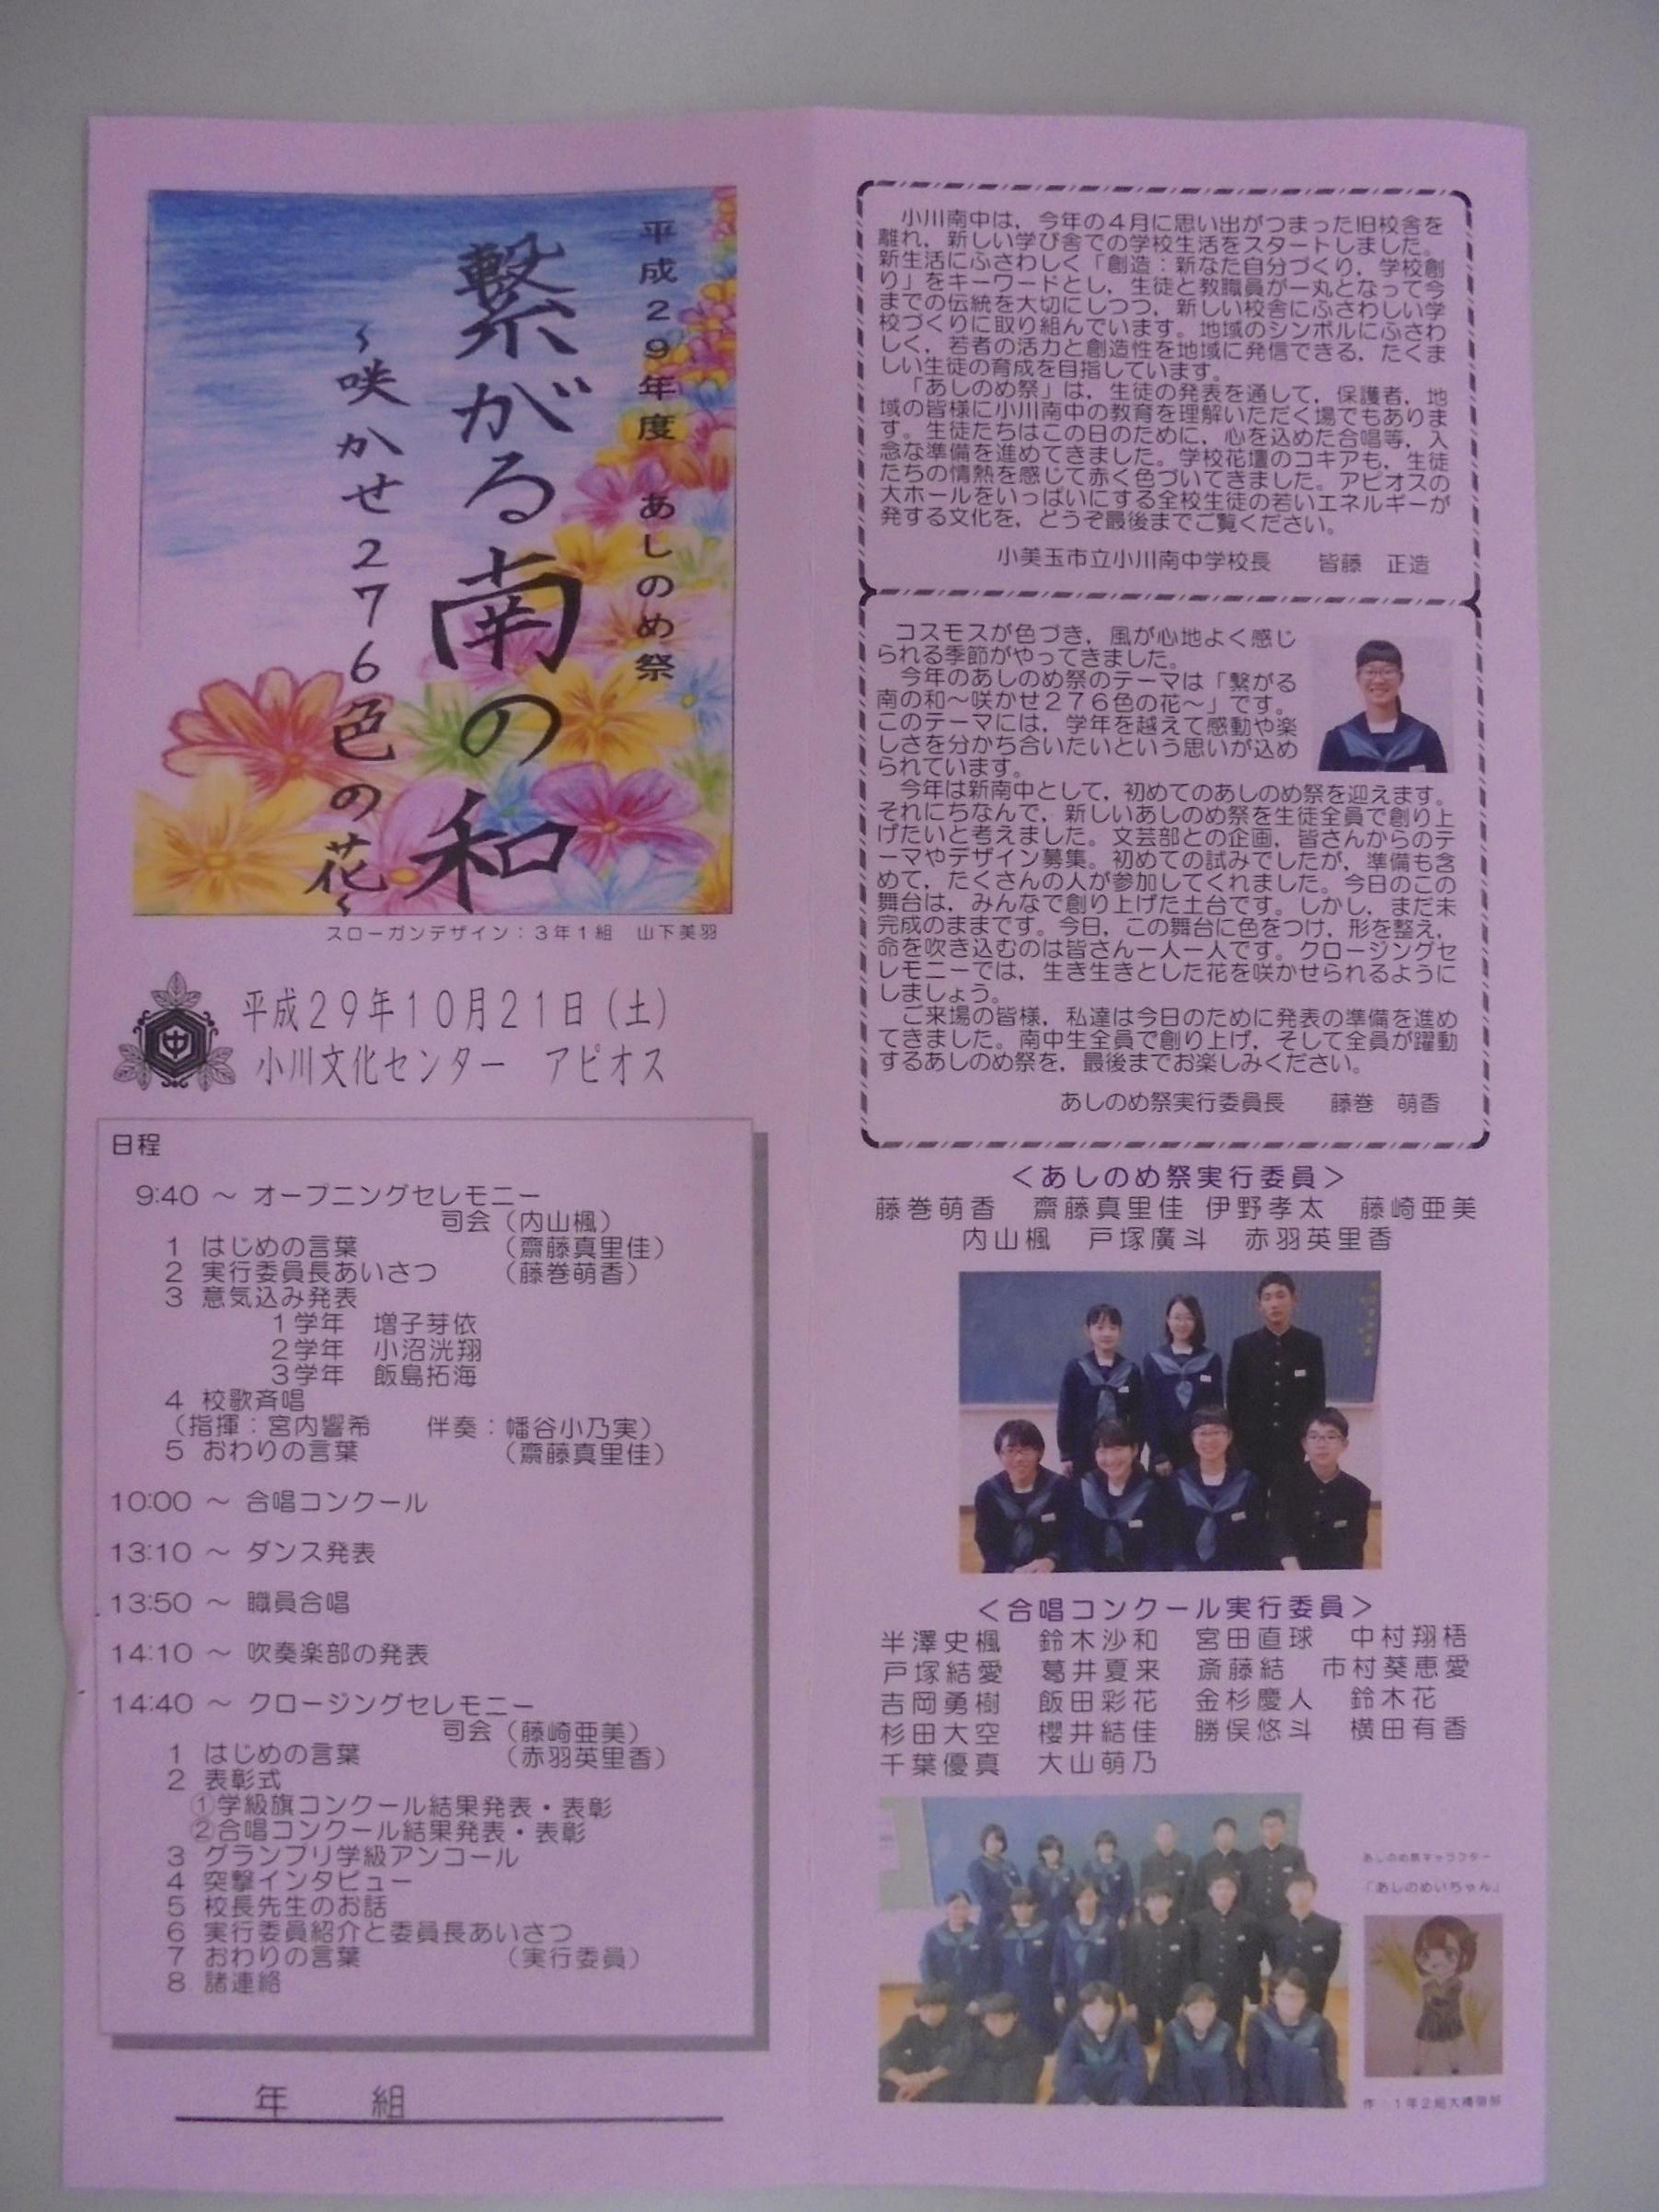 平成29年度 あしのめ祭
繋がる南の和
~咲かせ276色の花~
スローガンデザイン：3年1組 山下美羽
中
平成29年10月21日（土）
小川文化センター アピオス
日程
9:40 ～ オープニングセレモニー
司会（内山楓）
1 はじめの言葉 （齋藤真里佳）
2 実行委員長あいさつ （藤巻萌香）
3 意気込み発表
1学年 増子芽依
2学年 小沼洸翔
3学年 飯島拓海
4 校歌斉唱
（指揮：宮内響希 伴奏：幡谷小乃実）
5 おわりの言葉 （齋藤真里佳）
10:00 ～ 合唱コンクール
13:10 ～ ダンス発表
13:50 ～ 職員合唱
14:10 ～ 吹奏楽部の発表
14:40 ～ クロージングセレモニー
司会（藤崎亜美）
1 はじめの言葉 （赤羽英里香）
2 表彰式
①学級旗コンクール結果発表・表彰
②合唱コンクール結果発表・表彰
3 グランプリ学級アンコール
4 突撃インタビュー
5 校長先生のお話
6 実行委員紹介と委員長あいさつ
7 おわりの言葉 （実行委員）
8 諸連絡
年 組
小川南中は，今年の4月に思い出がつまった旧校舎を
離れ，新しい学び舎での学校生活をスタートしました。
新生活にふさわしく「創造：新なた自分づくり，学校創
り」をキーワードとし，生徒と教職員が一丸となって今
までの伝統を大切にしつつ，新しい校舎にふさわしい学
校づくりに取り組んでいます。地域のシンボルにふさわ
しく，若者の活力と創造性を地域に発信できる，たくま
しい生徒の育成を目指しています。
「あしのめ祭」は，生徒の発表を通して，保護者，地
域の皆様に小川南中の教育を理解いただく場でもありま
す。生徒たちはこの日のために，心を込めた合唱等，入
念な準備を進めてきました。学校花壇のコキアも，生徒
たちの情熱を感じて赤く色づいてきました。アピオスの
大ホールをいっぱいにする全校生徒の若いエネルギーが
発する文化を，どうぞ最後までご覧ください。
小美玉市立小川南中学校長 皆藤 正造
コスモスが色づき，風が心地よく感じ
られる季節がやってきました。
今年のあしのめ祭のテーマは「繋がる
南の和～咲かせ276色の花～」です。
このテーマには，学年を越えて感動や楽
しさを分かち合いたいという思いが込め
られています。
今年は新南中として，初めてのあしのめ祭を迎えます。
それにちなんで，新しいあしのめ祭を生徒全員で創り上
げたいと考えました。文芸部との企画，皆さんからのテ
ーマやデザイン募集。初めての試みでしたが，準備も含
めて，たくさんの人が参加してくれました。今日のこの
舞台は，みんなで創り上げた土台です。しかし，まだ未
完成のままです。今日，この舞台に色をつけ，形を整え，
命を吹き込むのは皆さん一人一人です。クロージングセ
レモニーでは，生き生きとした花を咲かせられるように
しましょう。
ご来場の皆様，私達は今日のために発表の準備を進め
てきました。南中生全員で創り上げ，そして全員が躍動
するあしのめ祭を，最後までお楽しみください。
あしのめ祭実行委員長 藤巻 萌香
＜あしのめ祭実行委員＞
藤巻萌香 齋藤真里佳 伊野孝太 藤崎亜美
内山楓 戸塚廣斗 赤羽英里香
＜合唱コンクール実行委員＞
半澤史楓 鈴木沙和 宮田直球 中村翔梧
戸塚結愛 葛井夏来 斎藤結 市村葵恵愛
吉岡勇樹 飯田彩花 金杉慶人 鈴木花
杉田大空 櫻井結佳 勝俣悠斗 横田有香
千葉優真 大山萌乃
あしのめ祭キャラクター
「あしのめいちゃん」
作 1年2組